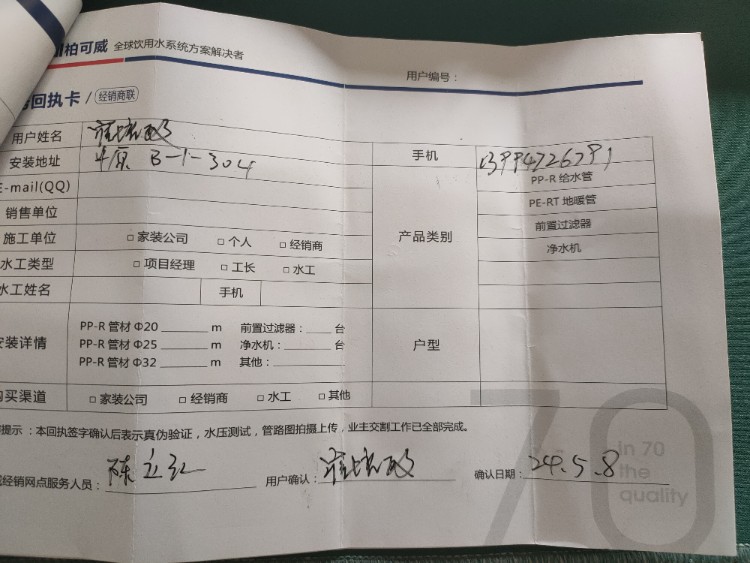 柏可威 全球饮用水系统方案解决者
用户编号：
回执卡 / 经销商联
用户姓名
安装地址 平原 B-1-304
手机 13994726791
E-mail(QQ)
销售单位
施工单位 □ 家装公司 □ 个人 □ 经销商
水工类型 □ 项目经理 □ 工长 □ 水工
水工姓名 手机
产品类别
PP-R 给水管
PE-RT 地暖管
前置过滤器
净水机
安装详情
PP-R 管材 Φ20 ______ m 前置过滤器：____ 台
PP-R 管材 Φ25 ______ m 净水机：____ 台
PP-R 管材 Φ32 ______ m 其他：____
户型
购买渠道 □ 家装公司 □ 经销商 □ 水工 □ 其他
提示 ：本回执签字确认后表示真伪验证，水压测试，管路图拍摄上传，业主交割工作已全部完成。
经销网点服务人员： 陈立红 用户确认： 确认日期： 24.5.8
70
in 70
the
quality